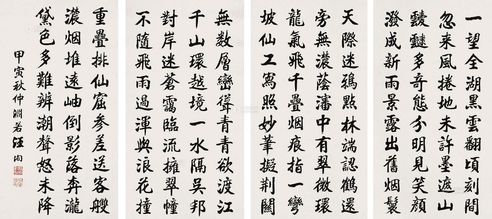 一望全湖黑雲翻頃刻間
忽來風捲地未許墨遮山
靉靆多奇態分明見笑顏
潑成新雨景露出舊烟鬟
天際迷鴉點林端認鶴還
旁無濃蔭瀋中有翠微環
龍氣飛千疊烟痕指一彎
坡仙工寫照妙筆擬荊關
無數層巒青青欲渡江
千山環越境一水隔吳邦
對岸迷蒼靄臨流擁翠幢
不隨飛雨過渾與浪花撞
重疊排仙窟參差送客艭
濃烟堆遠岫倒影落奔瀧
黛色多難辨潮聲怒未降
甲寅秋仲淵若汪洵